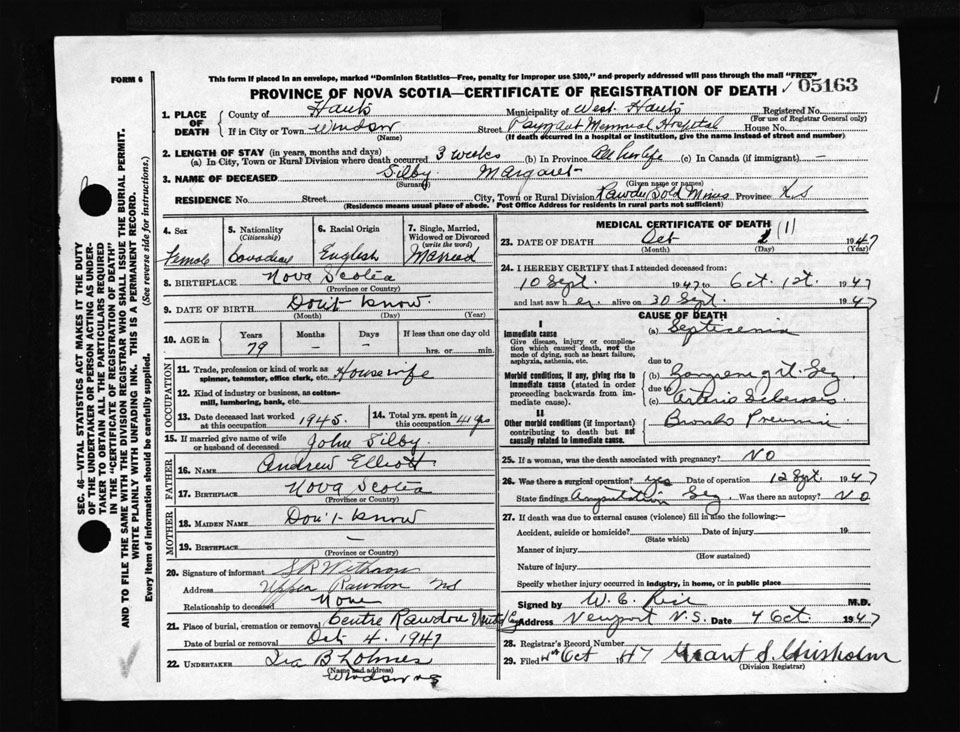 FORM 6
This form if placed in an envelope, marked "Dominion Statistics—Free, penalty for improper use $300," and properly addressed will pass through the mail "FREE"
PROVINCE OF NOVA SCOTIA—CERTIFICATE OF REGISTRATION OF DEATH 05163
1. PLACE OF DEATH County of Hants Municipality of West Hants Registered No.
(For use of Registrar General only)
If in City or Town Windsor Street Payzant Memorial Hospital House No.
(Name) (If death occurred in a hospital or institution, give the name instead of street and number)
2. LENGTH OF STAY (in years, months and days)
(a) In City, Town or Rural Division where death occurred 3 weeks (b) In Province All her life (c) In Canada (if immigrant) —
3. NAME OF DECEASED Silby Margaret
(Surname) (Given name or names)
RESIDENCE No. Street City, Town or Rural Division Rawdon Gold Mines Province N.S
(Residence means usual place of abode. Post Office Address for residents in rural parts not sufficient)
SEC. 46—VITAL STATISTICS ACT MAKES IT THE DUTY
OF THE UNDERTAKER OR PERSON ACTING AS UNDER-
TAKER TO OBTAIN ALL THE PARTICULARS REQUIRED
IN THE "CERTIFICATE OF REGISTRATION OF DEATH"
AND TO FILE THE SAME WITH THE DIVISION REGISTRAR WHO SHALL ISSUE THE BURIAL PERMIT.
WRITE PLAINLY WITH UNFADING INK. THIS IS A PERMANENT RECORD.
Every item of information should be carefully supplied. (See reverse side for instructions.)
4. Sex 5. Nationality (Citizenship) 6. Racial Origin 7. Single, Married, Widowed or Divorced (write the word)
Female Canadian English Married
8. BIRTHPLACE Nova Scotia
(Province or Country)
9. DATE OF BIRTH Don't know
(Month) (Day) (Year)
10. AGE in Years Months Days If less than one day old
79 — — hrs. or min.
OCCUPATION
11. Trade, profession or kind of work as spinner, teamster, office clerk, etc. Housewife
12. Kind of industry or business, as cotton-mill, lumbering, bank, etc.
13. Date deceased last worked at this occupation 1945. 14. Total yrs. spent in this occupation 41 yrs
15. If married give name of wife or husband of deceased John Silby
FATHER
16. NAME Andrew Elliott
17. BIRTHPLACE Nova Scotia
(Province or Country)
MOTHER
18. MAIDEN NAME Don't know
19. BIRTHPLACE —
(Province or Country)
20. Signature of informant
Address Upper Rawdon NS
Relationship to deceased None
21. Place of burial, cremation or removal Centre Rawdon
Date of burial or removal Oct 4. 1947
22. UNDERTAKER Ira B Lohnes
(Name and address)
Windsor NS
MEDICAL CERTIFICATE OF DEATH
23. DATE OF DEATH Oct 1 (1) 1947
(Month) (Day) (Year)
24. I HEREBY CERTIFY that I attended deceased from:
10 Sept. 1947 to Oct. 1st. 1947
and last saw her alive on 30 Sept. 1947
CAUSE OF DEATH
I
Immediate cause (a) Septicemia
Give disease, injury or complication which caused death, not the mode of dying, such as heart failure, asphyxia, asthenia, etc.
due to
Morbid conditions, if any, giving rise to immediate cause (stated in order proceeding backwards from immediate cause). (b) Gangrene rt. Leg.
due to
(c) Arterio Sclerosis
II
Other morbid conditions (if important) contributing to death but not causally related to immediate cause. Broncho Pneumonia
25. If a woman, was the death associated with pregnancy? NO
26. Was there a surgical operation? yes Date of operation 12 Sept. 1947
State findings Amputation Leg. Was there an autopsy? NO
27. If death was due to external causes (violence) fill in also the following:—
Accident, suicide or homicide? Date of injury 19
(State which)
Manner of injury
(How sustained)
Nature of injury
Specify whether injury occurred in industry, in home, or in public place
Signed by W. C. M.D.
Address Newport N.S. Date 4 Oct. 1947
28. Registrar's Record Number
29. Filed Oct 1947 Grant S. Chisholm
(Division Registrar)